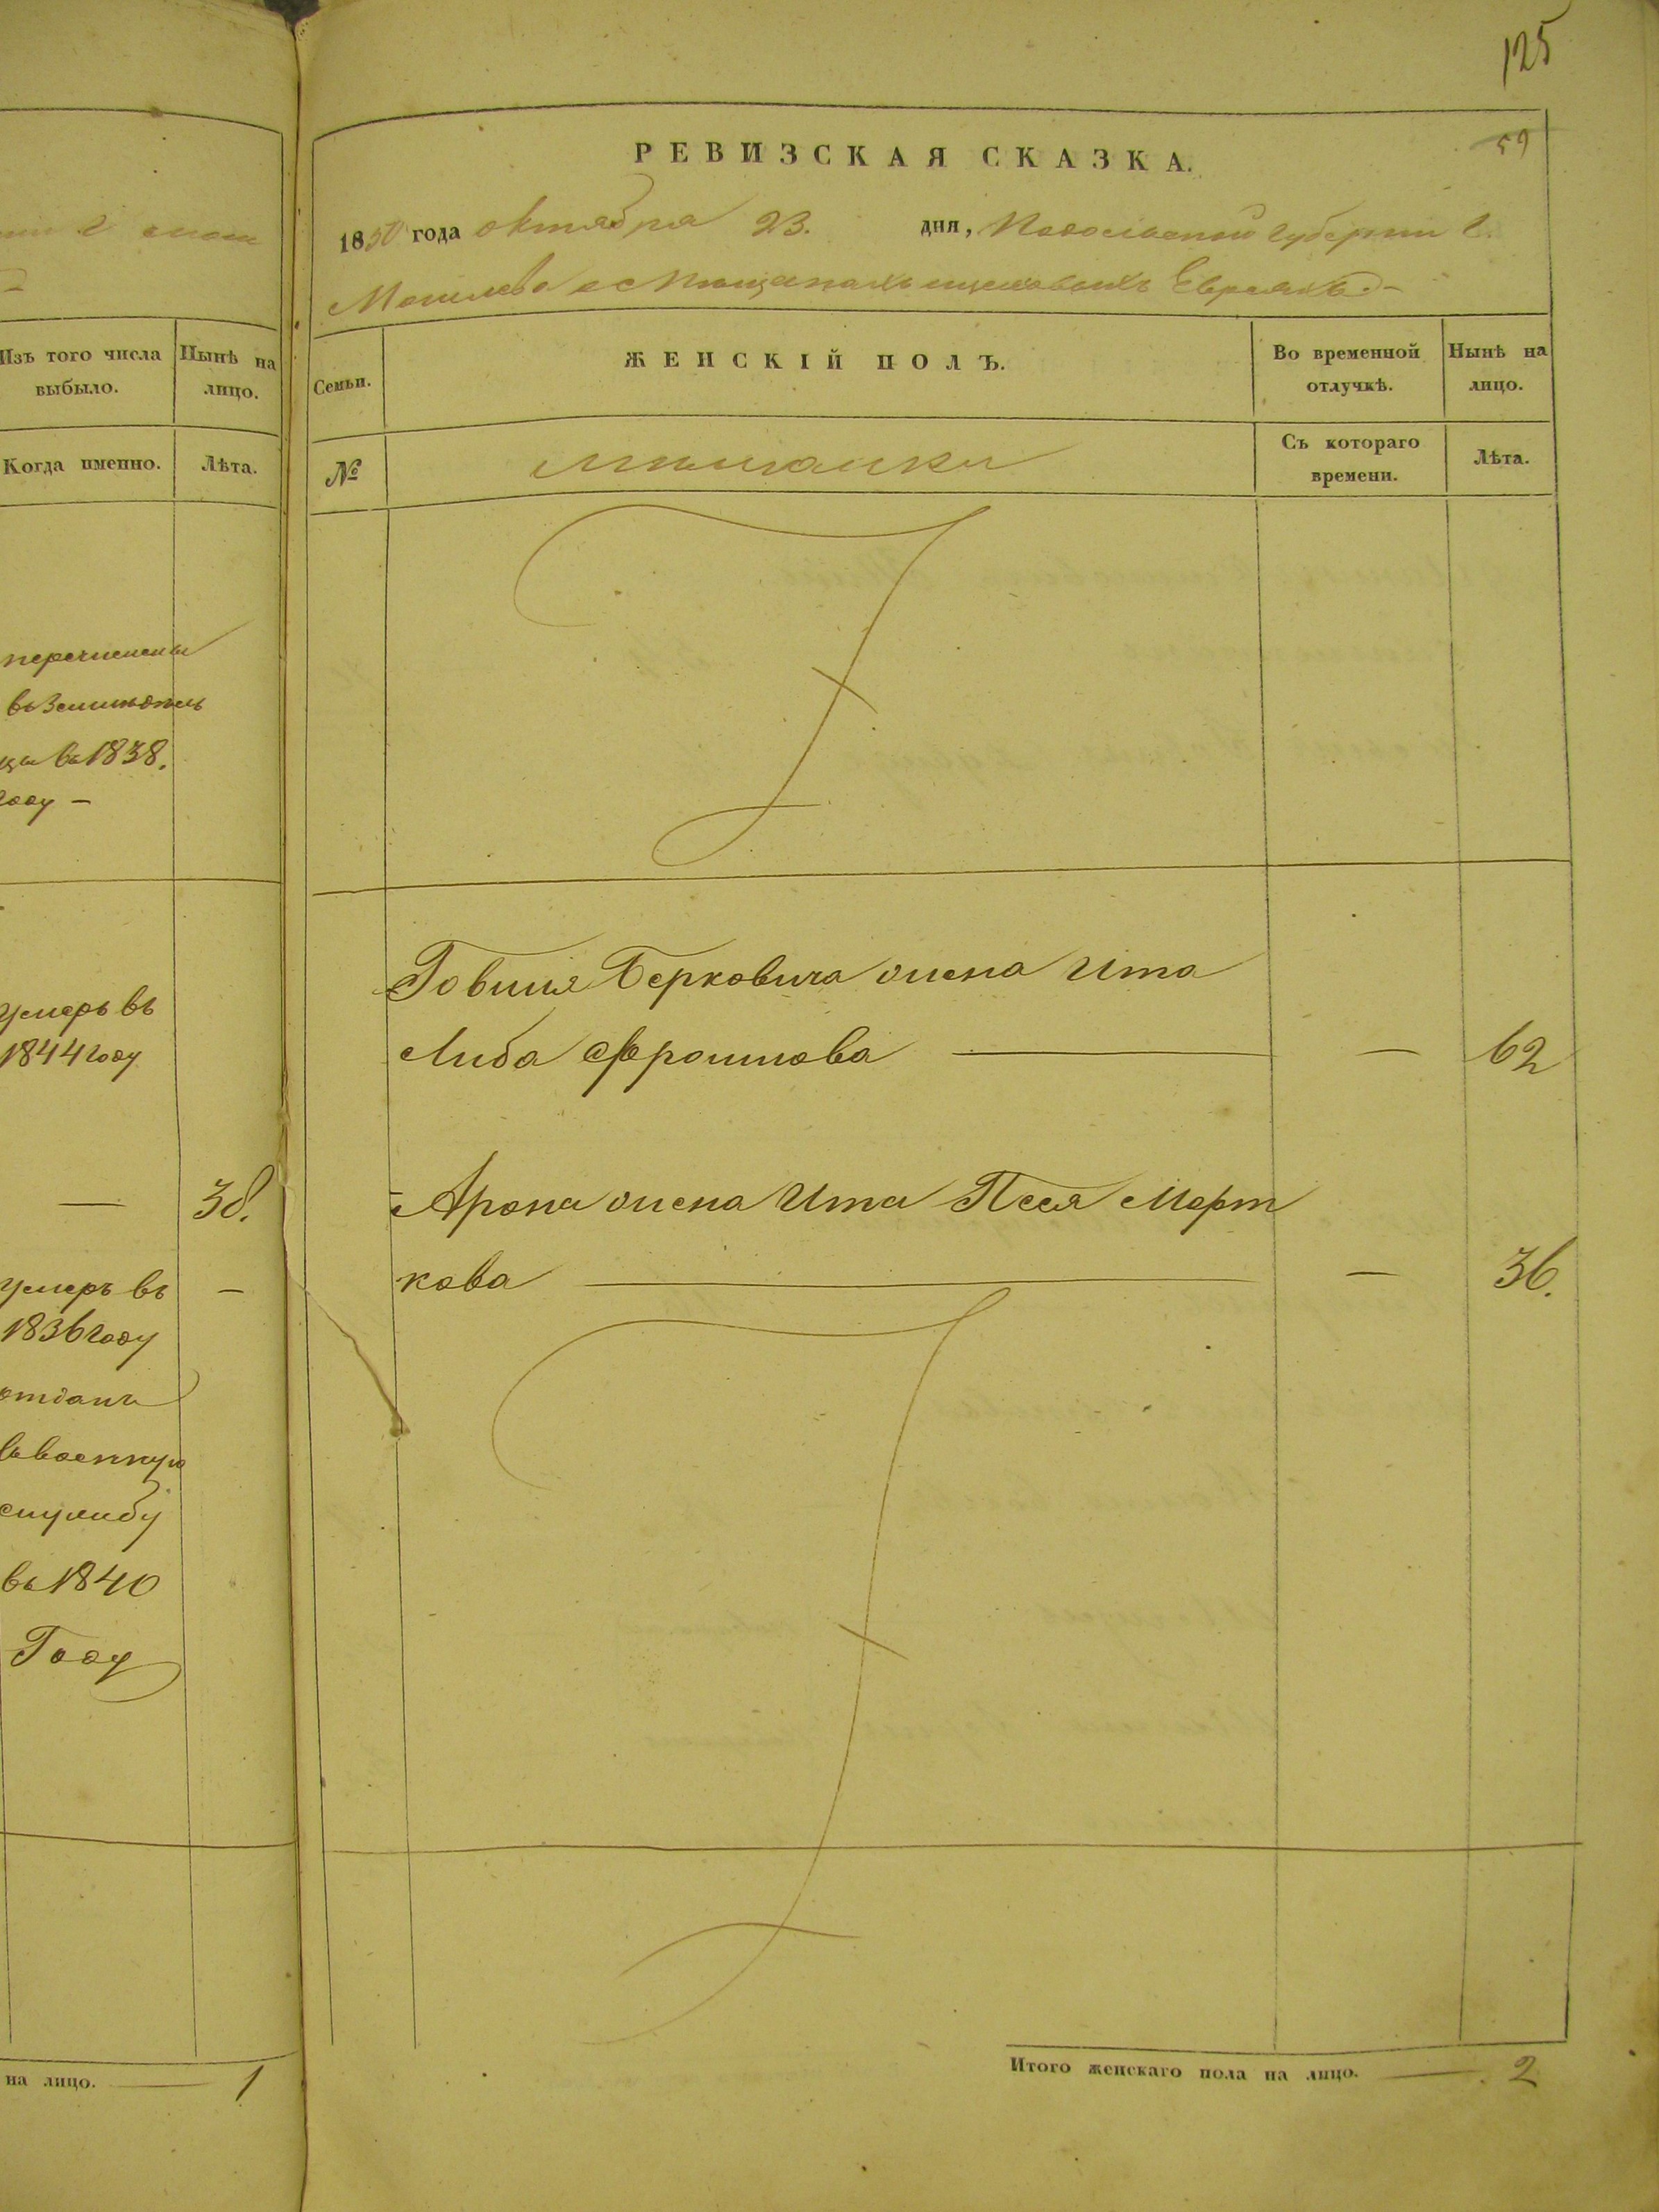 Изъ того числа
выбыло.
Нынѣ на
лицо.
Когда именно.
Лѣта.
перечислены
въ Земледѣль
цы въ 1838.
году —
умеръ въ
1844 году
— 38.
умеръ въ —
1836 году
отданъ
въ военную
службу
въ 1840
Году
на лицо. — 1
125
59
РЕВИЗСКАЯ СКАЗКА.
1850 года октября 23. дня, Подольской губерніи г.
Могилева о мѣщанахъ Евреяхъ
Семьи.
ЖЕНСКІЙ ПОЛЪ.
Во временной
отлучкѣ.
Нынѣ на
лицо.
№
мѣщанки
Съ котораго
времени.
Лѣта.
Товшія Берковича жена Ита
Либа Фроимова — — 62
Арона жена Ита Песя Морт
кова — — 36.
Итого женскаго пола на лицо. — 2